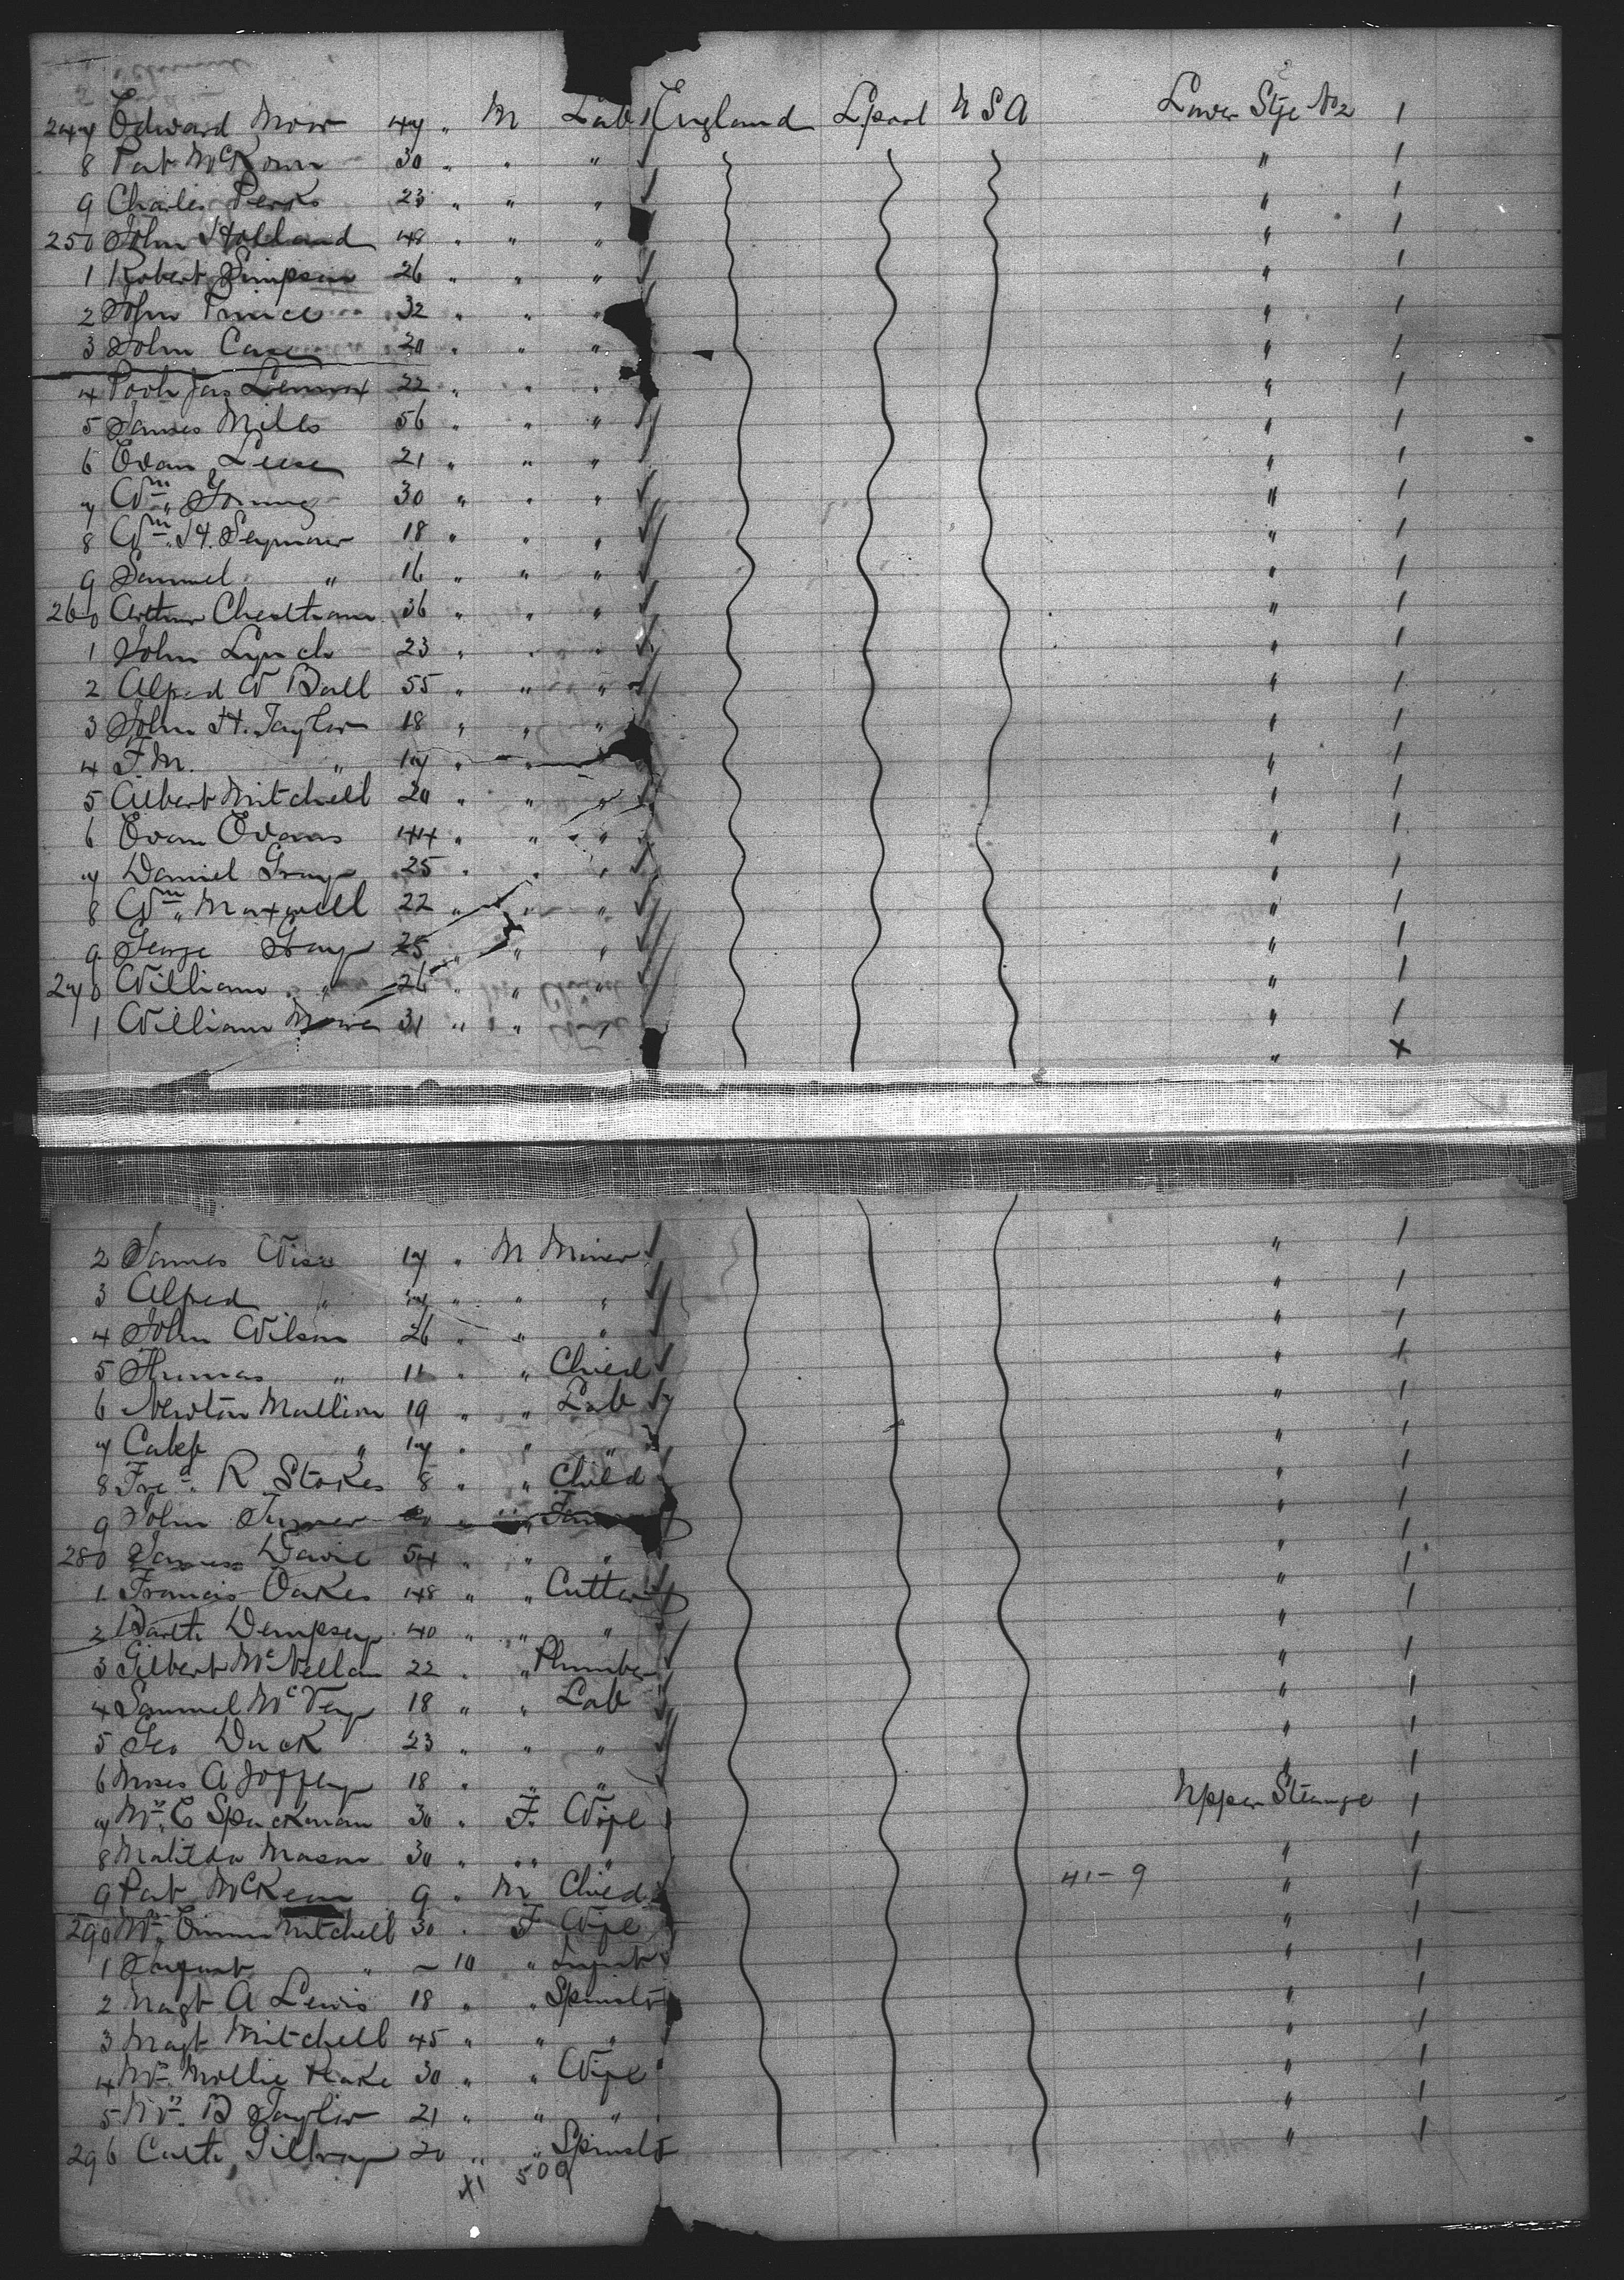 247 Edward 47 " M Lab England Lpool U S A Lower Stge No 2 1
8 Pat McKown 30 " " " " 1
9 Charles Perks 23 " " " " 1
250 John Holland 48 " " " " 1
1 Robert Simpson 26 " " " " 1
2 John Prince 32 " " " " 1
3 John Case 20 " " " " 1
4 Jas Lennox 22 " " " " 1
5 James Mills 56 " " " " 1
6 Evan 21 " " " " 1
7 Wm Young 30 " " " " 1
8 Wm H. Seymour 18 " " " " 1
9 Samuel " 16 " " " " 1
260 Arthur Cheetham 36 " " " " 1
1 John Lynch 23 " " " " 1
2 Alfred W Ball 55 " " " " 1
3 John H. Taylor 18 " " " " 1
4 F M. " 17 " " " " 1
5 Albert Mitchell 20 " " " " 1
6 Evan Evans 44 " " " " 1
7 Daniel Gray 25 " " " " 1
8 Wm Maxwell 22 " " " " 1
9 George Gray 25 " " " " 1
270 William " 26 " " " " 1
1 William 31 " " " 1
" x
2 James Wise 17 " M Miner " 1
3 Alfred " " " " " 1
4 John Wilson 26 " " " " 1
5 Thomas " 11 " " Child " 1
6 Newton Mallion 19 " " Lab " 1
7 Caleb " 17 " " " " 1
8 Fred R Stokes 8 " " Child " 1
9 John Turner " " " 1
280 James Davie 54 " " " " 1
1 Francis Oakes 48 " " Cutter " 1
2 Bartt Dempsey 40 " " " " 1
3 Gilbert McVella 22 " " Plumber " 1
4 Samuel McVey 18 " " Lab " 1
5 Geo Duck 23 " " " " 1
6 Moses A Joffey 18 " " " " 1
7 Mrs E Spackman 30 " F. Wife Upper Steerage 1
8 Matilda Mason 30 " " " " 1
9 Pat McKeon 9 " M Child 41-9 " 1
290 Mrs Emma Mitchell 30 " F Wife " 1
1 Infant " ~ 10 " Infant " 1
2 Magt A Lewis 18 " " Spinstr " 1
3 Magt Mitchell 45 " " " " 1
4 Mrs Mollie 30 " " Wife " 1
5 Mrs B Taylor 21 " " " " 1
296 Cath 20 " " Spinstr " 1
x1 509